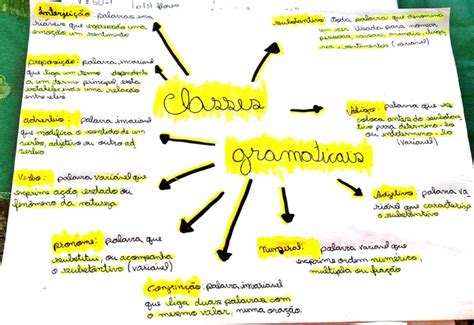 Interjeição: palavra inva
riável que expressa uma
emoção, um sentimento
Preposição: palavra invariável
que liga um termo dependente
a um termo principal, esta
belecendo uma relação
entre eles
advérbio: palavra invariável
que modifica o sentido de um
verbo, adjetivo ou outro ad
vérbio
Verbo: palavra variável que
exprime ação, estado ou
fenômeno da natureza
pronome: palavra que
substitui, ou acompanha
o substantivo (variável)
Conjunção: palavra invariável
que liga duas palavras com
o mesmo valor, numa oração.
Classes
gramaticais
substantivo: toda palavra que denomina
um ser. Usada para nomear
pessoas, animais, luga
res, sentimentos (variável)
Artigo: palavra que se
coloca antes do substan
tivo para determiná-lo
ou indeterminá-lo
(Variável)
Adjetivo: palavra va
riável que caracteriza
o substantivo
Numeral: palavra variável que
exprime ordem numérica,
multipla ou fração